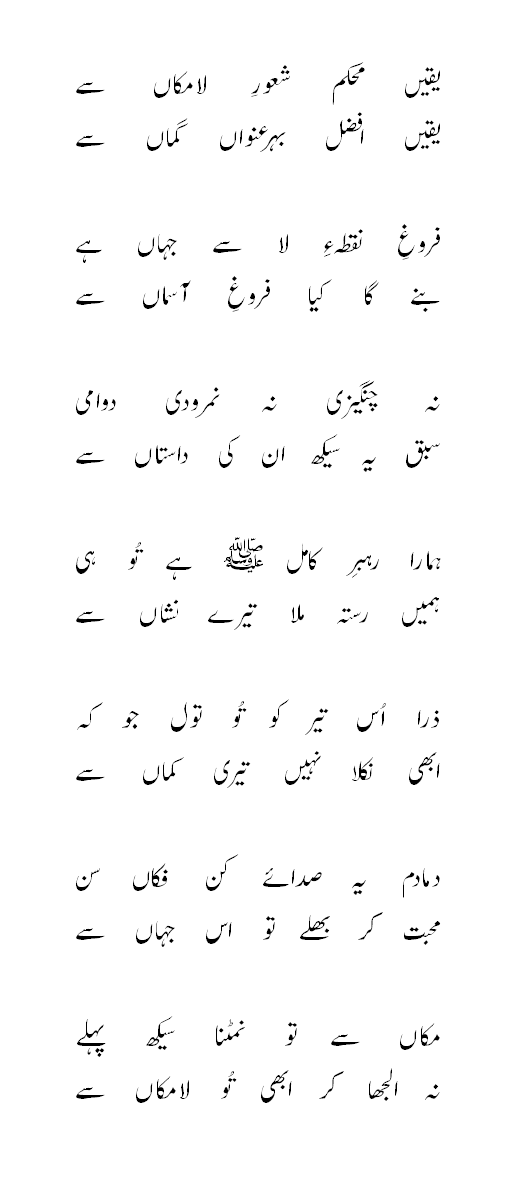 یقیں محکم شعورِ لامکاں سے
یقیں افضل بہرعنواں گماں سے
فروغِ نقطہءِ لا سے جہاں ہے
بنے گا کیا فروغِ آسماں سے
نہ چنگیزی نہ نمرودی دوامی
سبق یہ سیکھ ان کی داستاں سے
ہمارا رہبرِ کامل ﷺ ہے تُو ہی
ہمیں رستہ ملا تیرے نشاں سے
ذرا اُس تیر کو تُو تول جو کہ
ابھی نکلا نہیں تیری کماں سے
دمادم یہ صدائے کن فکاں سن
محبت کر بھلے تو اس جہاں سے
مکاں سے تو نمٹنا سیکھ پہلے
نہ الجھا کر ابھی تُو لامکاں سے